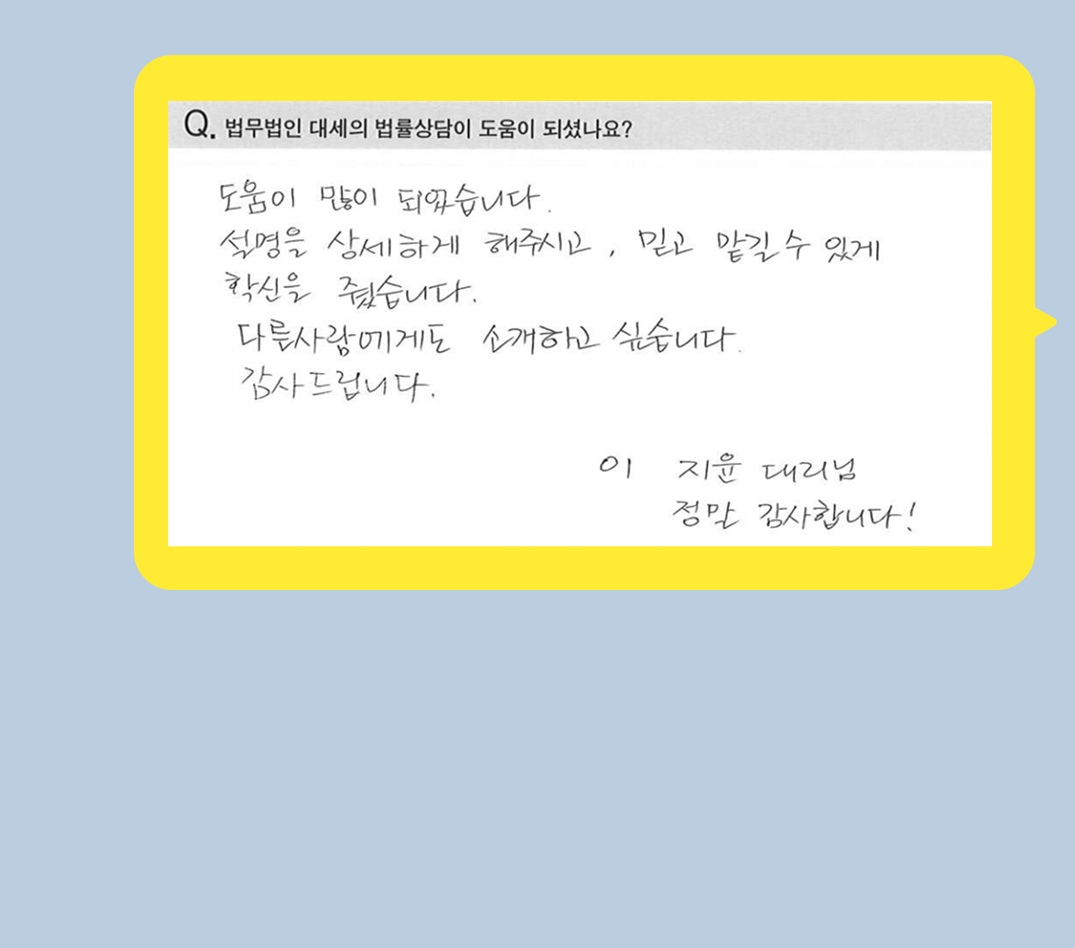 Q. 법무법인 대세의 법률상담이 도움이 되셨나요?
도움이 많이 되었습니다.
설명을 상세하게 해주시고, 믿고 맡길수 있게
확신을 줬습니다.
다른사람에게도 소개하고 싶습니다.
감사드립니다.
이 지윤 대리님
정말 감사합니다!